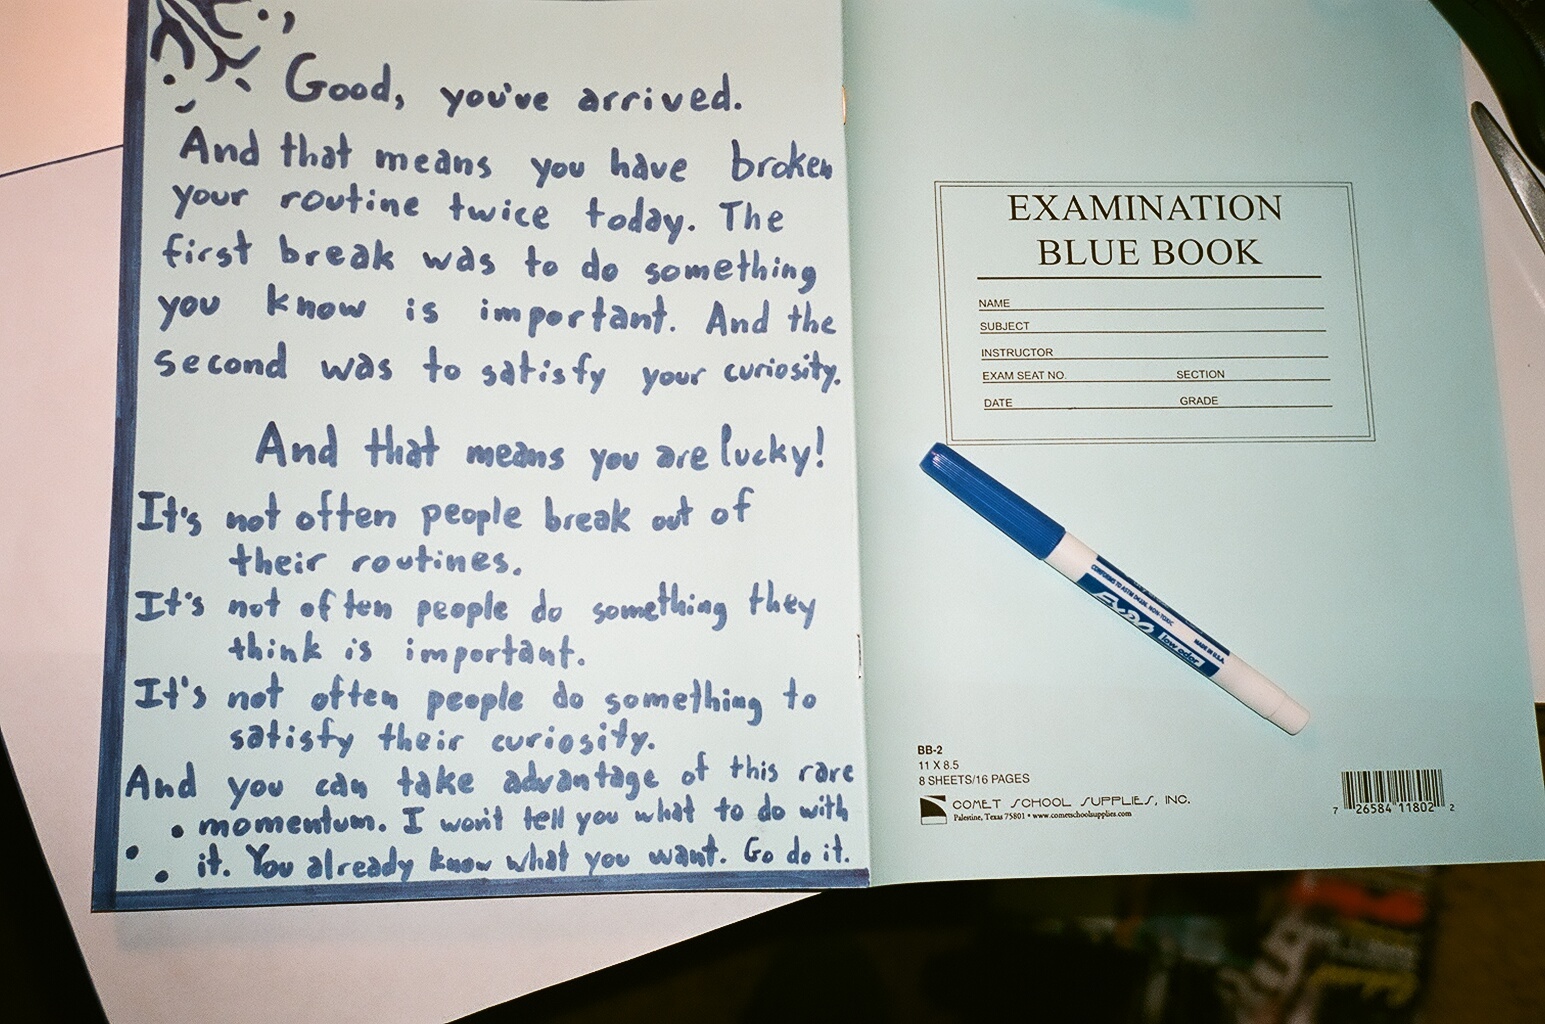 Good, you've arrived.
And that means you have broken
your routine twice today. The
first break was to do something
you know is important. And the
second was to satisfy your curiosity.
And that means you are lucky!
It's not often people break out of
their routines.
It's not often people do something they
think is important.
It's not often people do something to
satisfy their curiosity.
And you can take advantage of this rare
momentum. I won't tell you what to do with
it. You already know what you want. Go do it.
EXAMINATION
BLUE BOOK
NAME
SUBJECT
INSTRUCTOR
EXAM SEAT NO. SECTION
DATE GRADE
CONFORMS TO ASTM D4236. NON-TOXIC
EXPO low odor
MADE IN U.S.A.
BB-2
11 X 8.5
8 SHEETS/16 PAGES
COMET SCHOOL SUPPLIES, INC.
Palestine, Texas 75801 • www.cometschoolsupplies.com
7 26584 11802 2